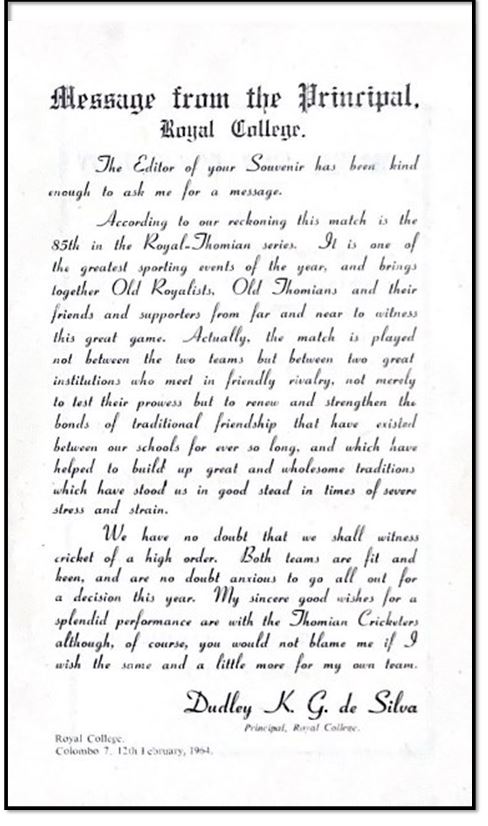 Message from the Principal,
Royal College.
The Editor of your Souvenir has been kind
enough to ask me for a message.
According to our reckoning this match is the
85th in the Royal-Thomian series. It is one of
the greatest sporting events of the year, and brings
together Old Royalists, Old Thomians and their
friends and supporters from far and near to witness
this great game. Actually, the match is played
not between the two teams but between two great
institutions who meet in friendly rivalry, not merely
to test their prowess but to renew and strengthen the
bonds of traditional friendship that have existed
between our schools for ever so long, and which have
helped to build up great and wholesome traditions
which have stood us in good stead in times of severe
stress and strain.
We have no doubt that we shall witness
cricket of a high order. Both teams are fit and
keen, and are no doubt anxious to go all out for
a decision this year. My sincere good wishes for a
splendid performance are with the Thomian Cricketers
although, of course, you would not blame me if I
wish the same and a little more for my own team.
Dudley K. G. de Silva
Principal, Royal College.
Royal College.
Colombo 7, 12th February, 1964.